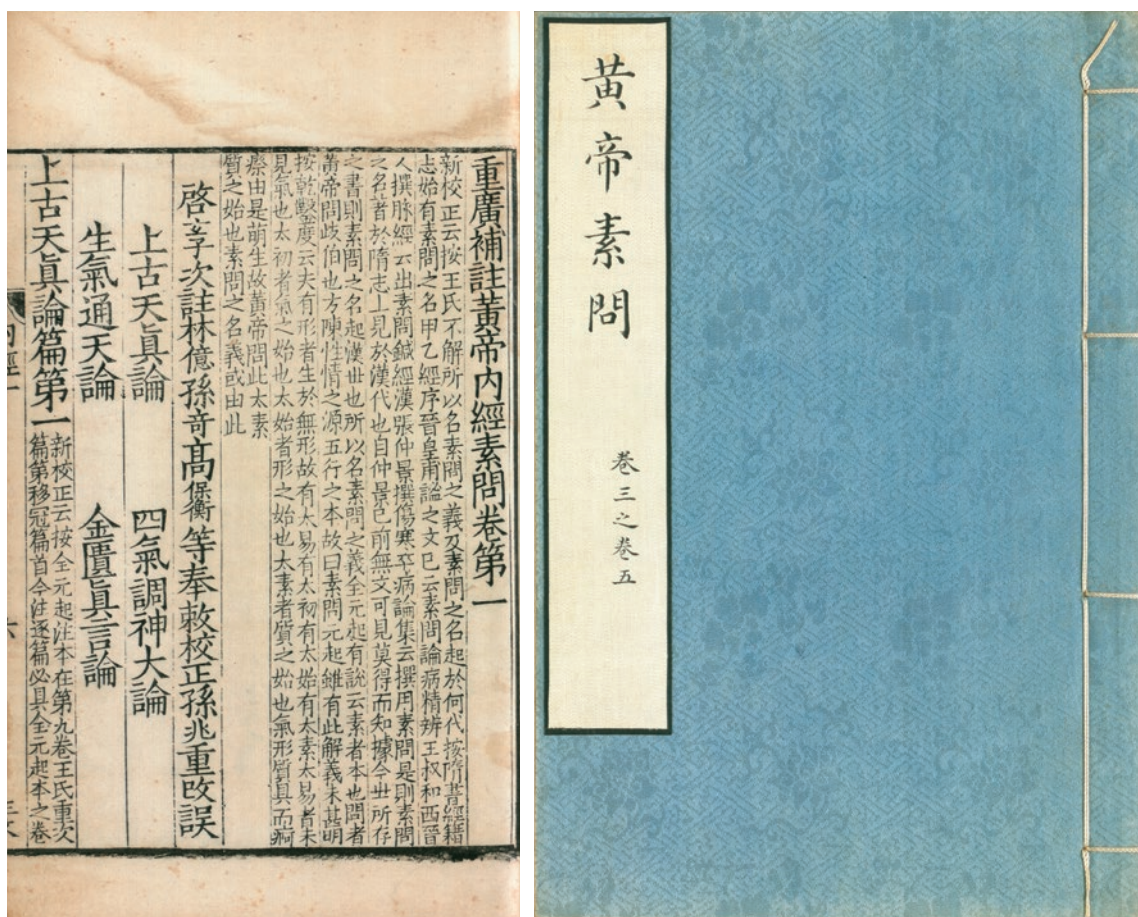 重廣補註黃帝內經素問卷第一
新校正云按王氏不解所以名素問之義及素問之名起於何代按隋書經籍
志始有素問之名甲乙經序晉皇甫謐之文已云素問論病精辨王叔和西晉
人撰脉經云出素問鍼經漢張仲景撰傷寒卒病論集云撰用素問是則素問
之名著於隋志上見於漢代也自仲景已前無文可見莫得而知據今丗所存
之書則素問之名起漢丗也所以名素問之義全元起有說云素者本也問者
黃帝問歧伯也方陳性情之源五行之本故曰素問元起雖有此解義未甚明
按乾鑿度云夫有形者生於無形故有太易有太初有太始有太素太易者未
見氣也太初者氣之始也太始者形之始也太素者質之始也氣形質具而痾
瘵由是萌生故黃帝問此太素
質之始也素問之名義或由此
啓玄子次註林億孫奇高保衡等奉敕校正孫兆重改誤
上古天眞論 四氣調神大論
生氣通天論 金匱眞言論
上古天眞論篇第一
新校正云按全元起注本在第九卷王氏重次
篇第移冠篇首今注逐篇必具全元起本之卷
黃帝素問
卷三之卷五